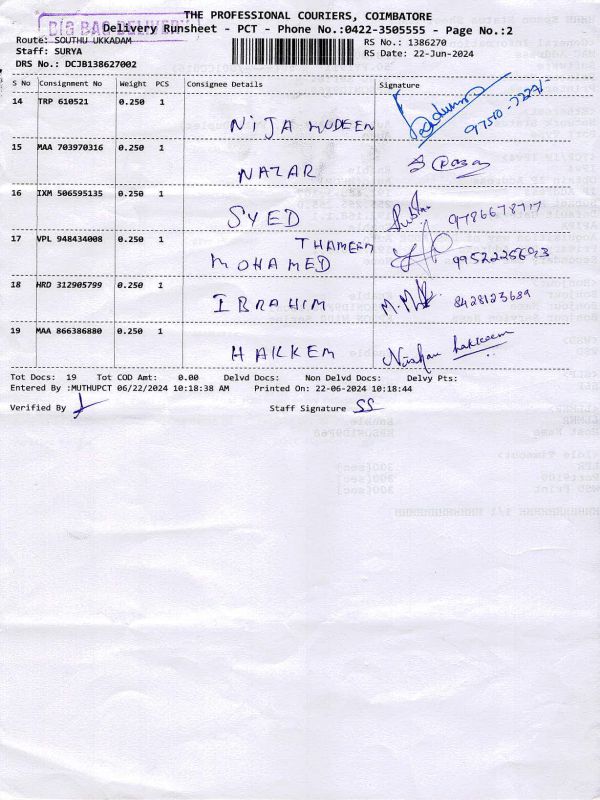 THE PROFESSIONAL COURIERS, COIMBATORE
BIG BAG DELIVERY
Delivery Runsheet - PCT - Phone No.:0422-3505555 - Page No.:2
Route: SOUTHU UKKADAM
RS No.: 1386270
Staff: SURYA
RS Date: 22-Jun-2024
DRS No.: DCJB138627002
S No Consignment No Weight PCS Consignee Details Signature
14 TRP 610521 0.250 1 NIJAMUDEEN
15 MAA 703970316 0.250 1 NAZAR
16 IXM 506595135 0.250 1 SYED
17 VPL 948434008 0.250 1 THAMEEM MOHAMED
18 HRD 312905799 0.250 1 IBRAHIM M.M 8428123689
19 MAA 866386880 0.250 1 HAKKEM
Tot Docs: 19 Tot COD Amt: 0.00 Delvd Docs: Non Delvd Docs: Delvy Pts:
Entered By :MUTHUPCT 06/22/2024 10:18:38 AM Printed On: 22-06-2024 10:18:44
Verified By Staff Signature SS